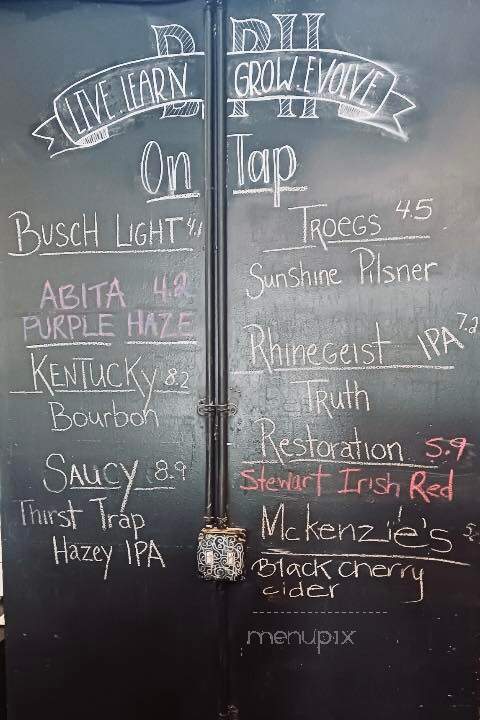 LIVE.LEARN. GROW.EVOLVE
On Tap
BUSCH LIGHT 4.1
ABITA 4.2
PURPLE HAZE
KENTUCKY 8.2
Bourbon
SAUCY 8.9
Thirst Trap
Hazey IPA
TROEGS 4.5
Sunshine Pilsner
Rhinegeist IPA 7.2
Truth
Restoration 5.9
Stewart Irish Red
Mckenzie's
Black cherry
cider
menupix